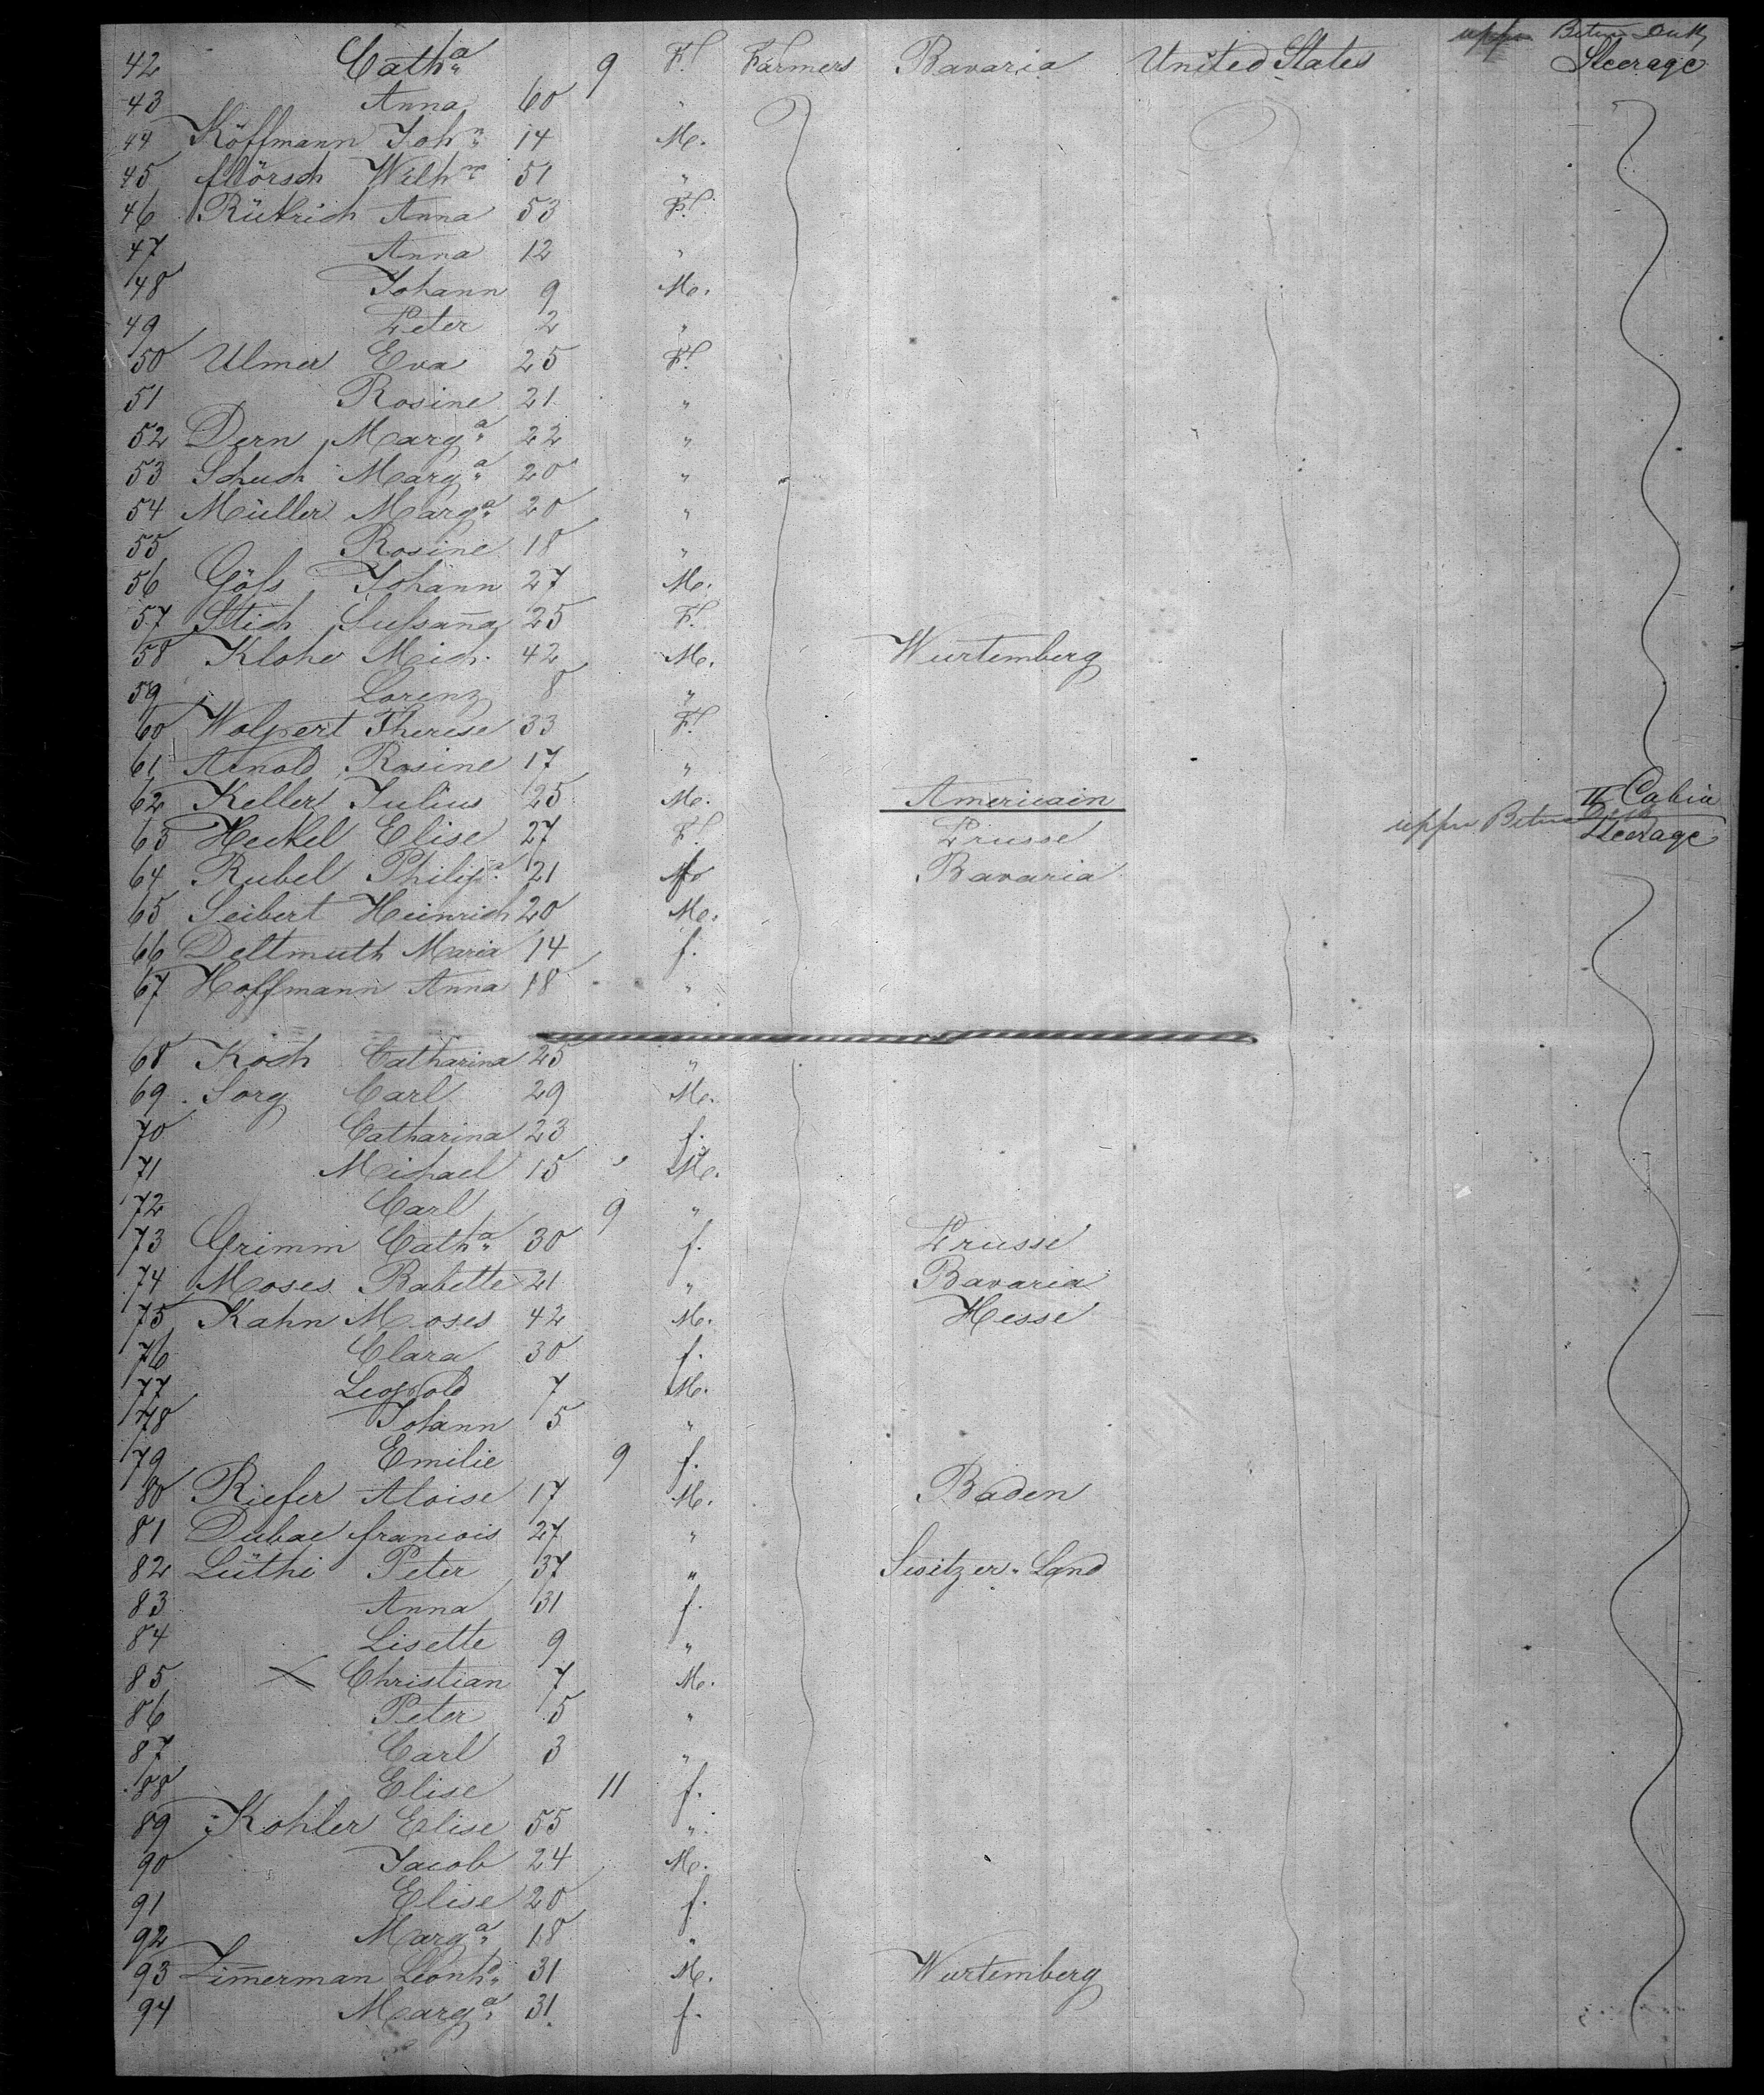 upper Betwn Deck
42 Cath.a 9 F. Farmers Bavaria United States Steerage
43 Anna 60 "
44 Köffmann Joh.n 14 M.
45 Mörsch Wilh.m 51 "
46 Rütrich Anna 53 F.
47 Anna 12 "
48 Johann 9 M.
49 Peter 2 "
50 Ulmer Eva 25 F.
51 Rosine 21 "
52 Dern Marg.a 22 "
53 Schuch Marg.a 20 "
54 Müller Marg.a 20 "
55 Rosine 18 "
56 Göss Johann 27 M.
57 Stich Sussana 25 F.
58 Klohe Mich. 42 M. Wurtemberg
59 Lorenz 8 "
60 Wolpert Therese 33 F.
61 Arnold Rosine 17 "
62 Keller Julius 25 M. Americain II Cabin
63 Heckel Elise 27 F. Prusse upper Betwn Deck Steerage
64 Rubel Philip.a 21 Bavaria
65 Seibert Heinrich 20 M.
66 Deltmuth Maria 14 f.
67 Hoffmann Anna 18 "
68 Koch Catharina 25 "
69 Sorg Carl 29 M.
70 Catharina 23 f.
71 Michael 15 M.
72 Carl 9 "
73 Grimm Cath.a 30 f. Prusse
74 Moses Babette 21 " Bavaria
75 Kahn Moses 42 M. Hesse
76 Clara 30 f.
77 Leopold 7 M.
78 Johann 5 "
79 Emilie 9 f.
80 Riefer Aloise 17 M. Baden
81 Dubac francois 27 "
82 Lüthi Peter 37 " Switzer-Land
83 Anna 31 f.
84 Lisette 9 "
85 X Christian 7 M.
86 Peter 5 "
87 Carl 3 "
88 Elise 11 f.
89 Kohler Elise 55 "
90 Jacob 24 M.
91 Elise 20 f.
92 Marg.a 18 "
93 Zimerman Leonh.d 31 M. Wurtemberg
94 Marg.a 31 f.